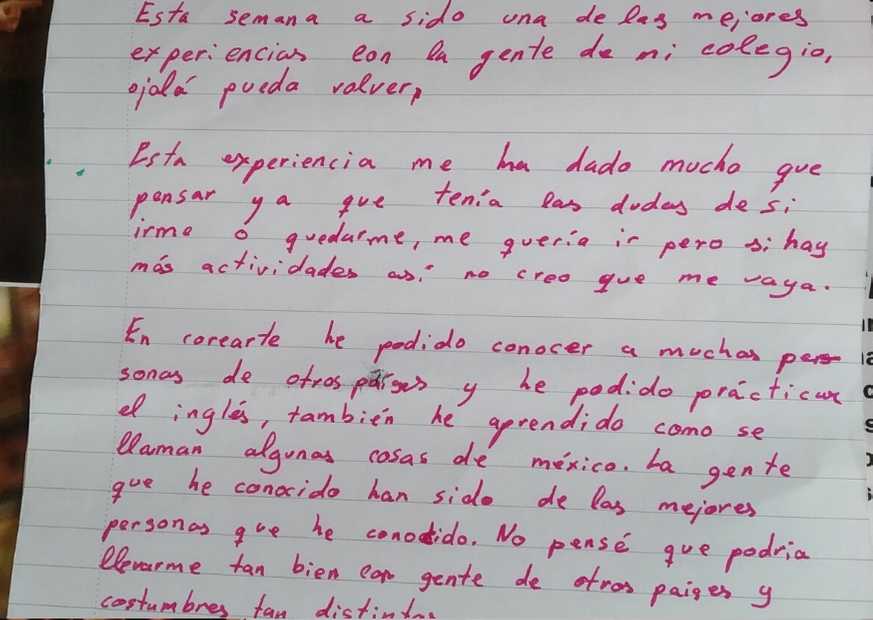 Esta semana a sido una de las mejores
experiencias con la gente de mi colegio,
ojalá pueda volver,
Esta experiencia me ha dado mucho que
pensar ya que tenía las dudas de si
irme o quedarme, me quería ir pero si hay
más actividades así no creo que me vaya.
En corearte he podido conocer a muchas per-
sonas de otros paises y he podido prácticar
el inglés, también he aprendido como se
llaman algunas cosas de méxico. La gente
que he conocido han sido de las mejores
personas que he conocido. No pensé que podria
llevarme tan bien con gente de otros paises y
costumbres tan distintas